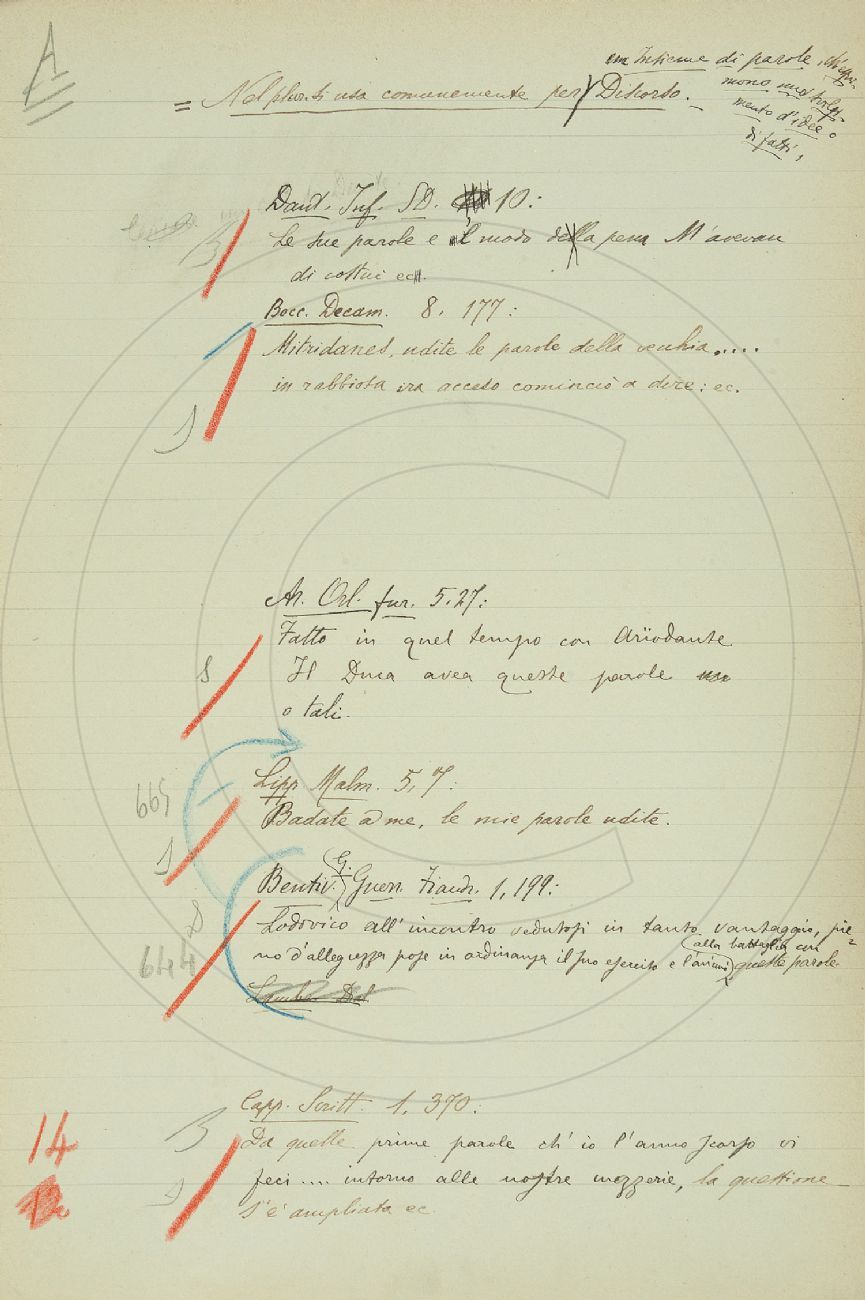 A
un Insieme di parole, ch'espri-
mono uno svolgi-
mento d'idee o
di fatti,
= Nel plur. si usa comunemente per Discorso. _
Dant. Inf. SD. 10:
Le sue parole e il modo della pena M'avevan
di costui ec.
Bocc. Decam. 8. 177:
Mitridanes, udite le parole della vecchia....
in rabbiosa ira acceso cominciò a dire: ec.
Ar. Orl. fur. 5. 27:
Fatto in quel tempo con Ariodante
Il Duca avea queste parole
o tali.
Lipp. Malm. 5, 7:
665
Badate a me, le mie parole udite.
Bentiv. G. Guerr. Fiandr. 1, 199:
Lodovico all'incontro vedutosi in tanto vantaggio, pie-
alla battaglia con
644
no d'allegrezza pose in ordinanza il suo esercito e l'animò queste parole.
Capp. Scritt. 1, 370:
14
Da quelle prime parole ch'io l'anno scorso vi
feci .... intorno alle nostre mezzerie, la questione
s'è ampliata ec.